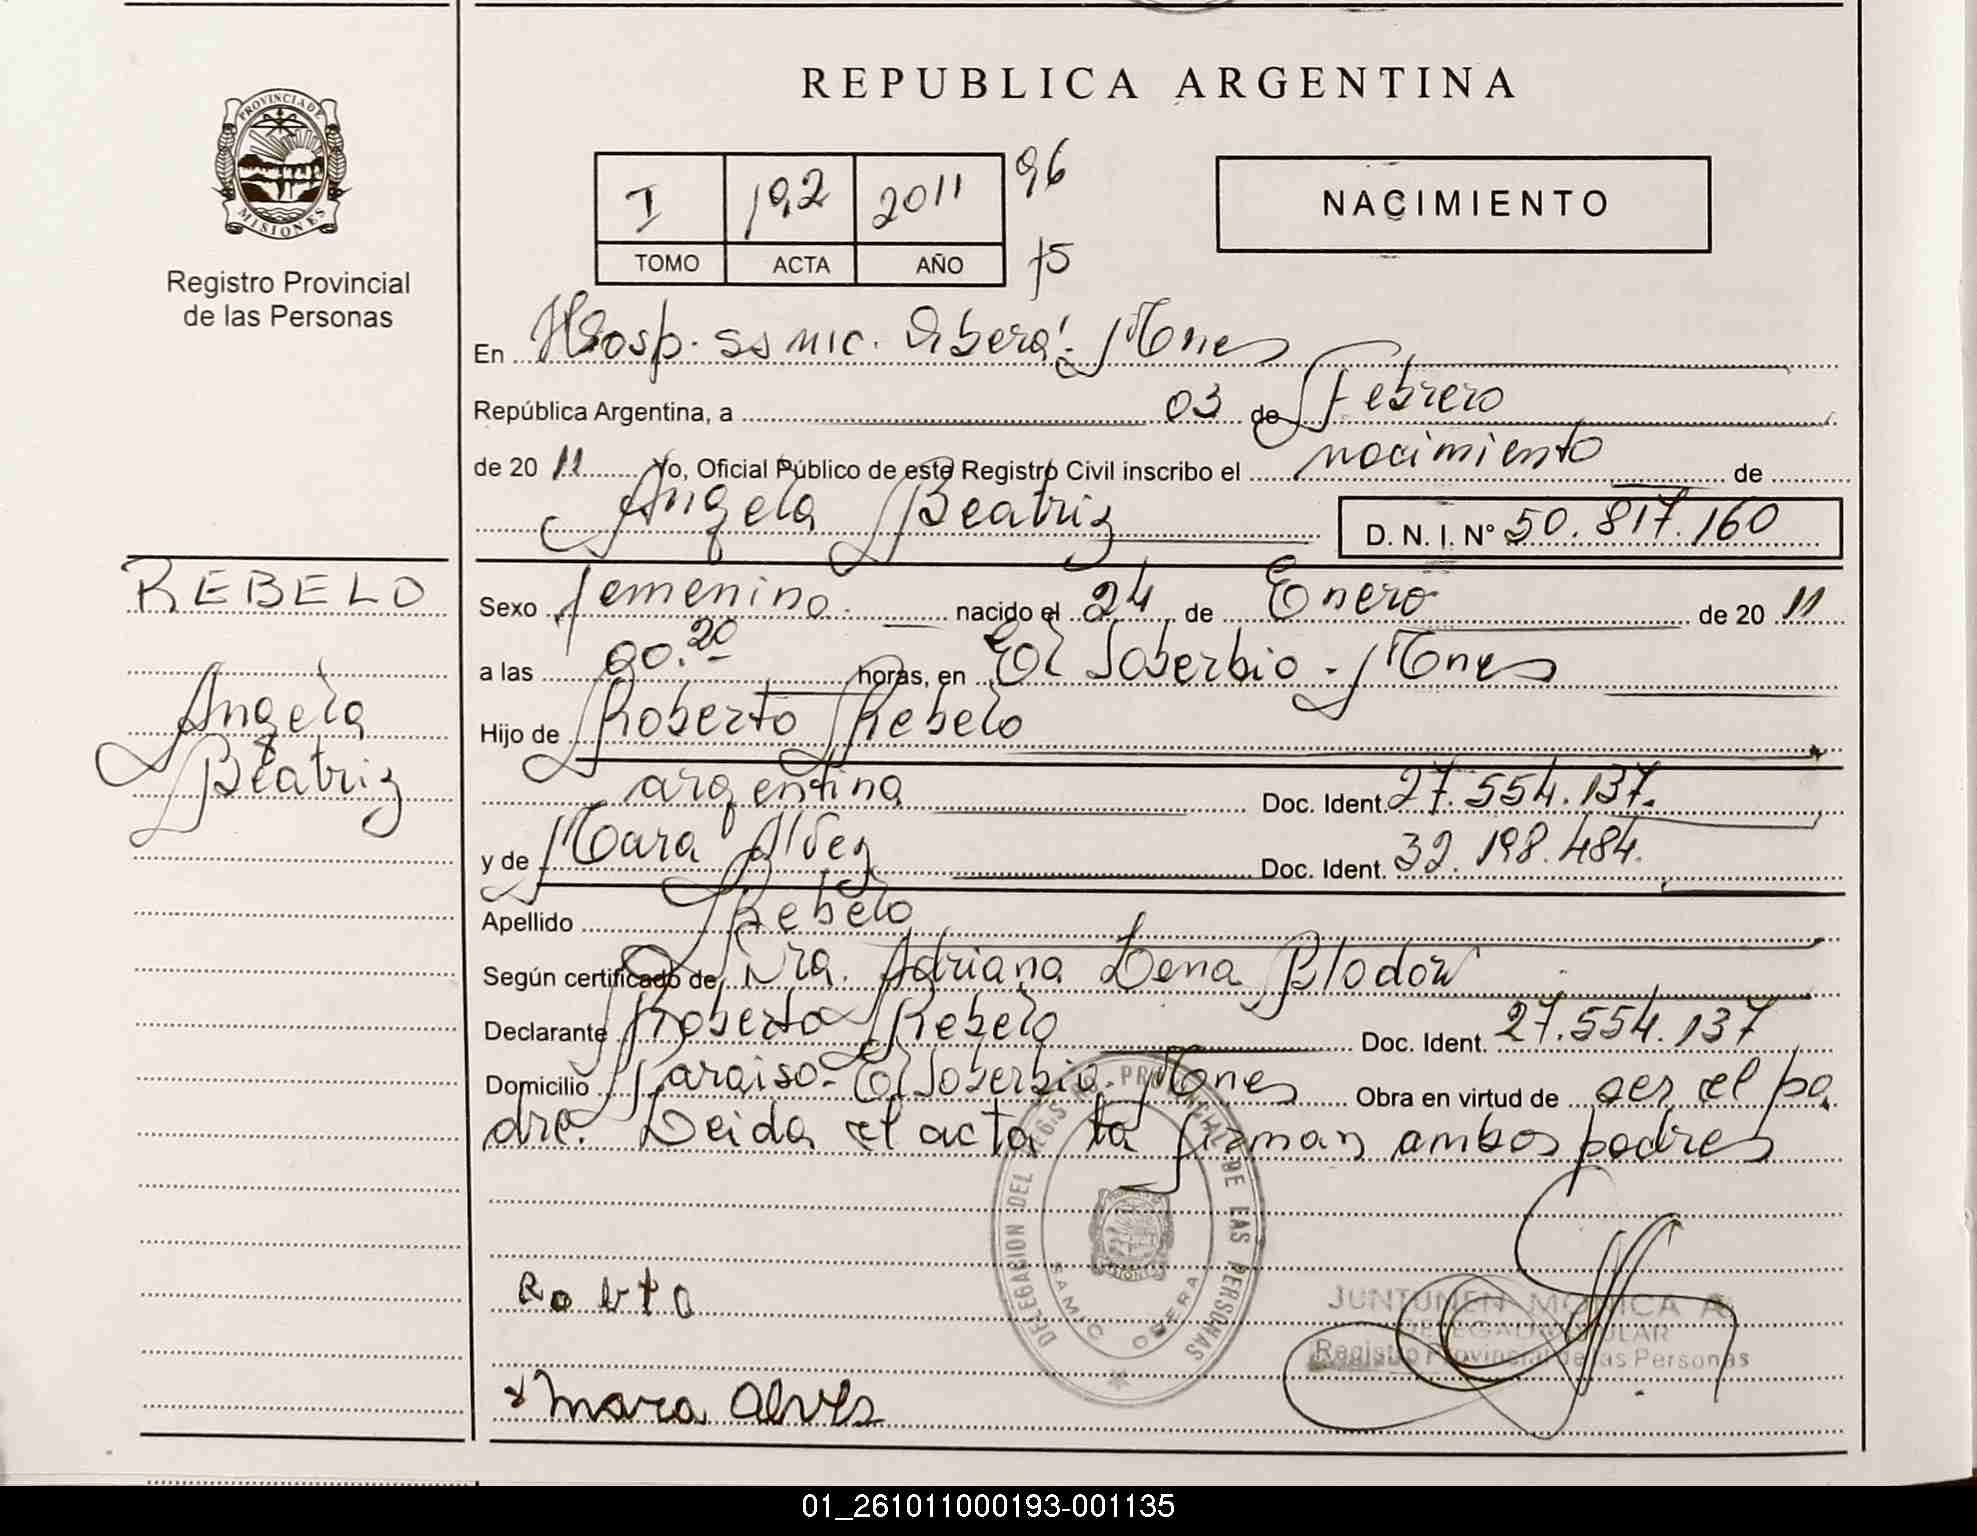 REPUBLICA ARGENTINA
PROVINCIA DE
MISIONES
Registro Provincial
de las Personas
I 192 2011 96
TOMO ACTA AÑO 75
NACIMIENTO
En Hosp. ss mic. Oberá - Mnes
República Argentina, a 03 de Febrero
de 20 11 Yo, Oficial Público de este Registro Civil inscribo el nacimiento de
Angela Beatriz D. N. I. N° 50.817.160
REBELO
Angela
Beatriz
Sexo femenino. nacido el 24 de Enero de 20 11
a las 00.20 horas, en El Soberbio - Mnes
Hijo de Roberto Rebelo
argentina Doc. Ident. 27.554.137.
y de Mara Alvez Doc. Ident. 32.198.484.
Apellido Rebelo
Según certificado de Dra. Adriana Lena Blodow
Declarante Roberto Rebelo Doc. Ident. 27.554.137
Domicilio Paraiso - El Soberbio - Mnes Obra en virtud de ser el pa
dre. Leida el acta la firman ambos padres
DELEGACION DEL REGIS. PROVINCIAL DE LAS PERSONAS
SAMIC OBERA
Robto
JUNTUNEN MONICA A
DELEGADA TITULAR
Registro Provincial de las Personas
x Mara Alves
01_261011000193-001135